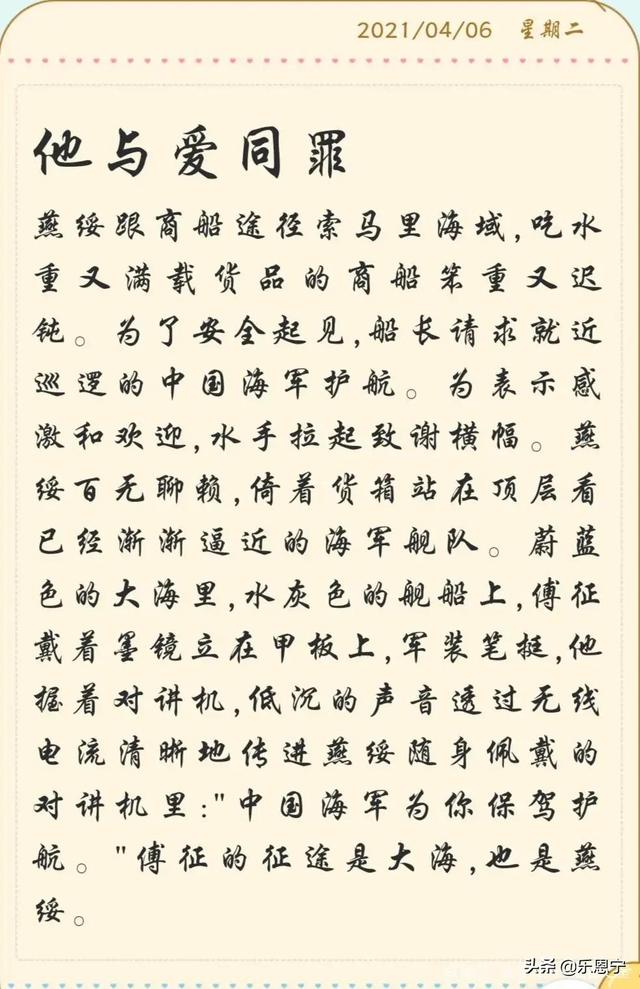 2021/04/06 星期二
他与爱同罪
燕绥跟商船途径索马里海域,吃水
重又满载货品的商船笨重又迟
钝。为了安全起见,船长请求就近
巡逻的中国海军护航。为表示感
激和欢迎,水手拉起致谢横幅。燕
绥百无聊赖,倚着货箱站在顶层看
已经渐渐逼近的海军舰队。蔚蓝
色的大海里,水灰色的舰船上,傅征
戴着墨镜立在甲板上,军装笔挺,他
握着对讲机,低沉的声音透过无线
电流清晰地传进燕绥随身佩戴的
对讲机里:"中国海军为你保驾护
航。"傅征的征途是大海,也是燕
绥。
头条 @乐恩宁